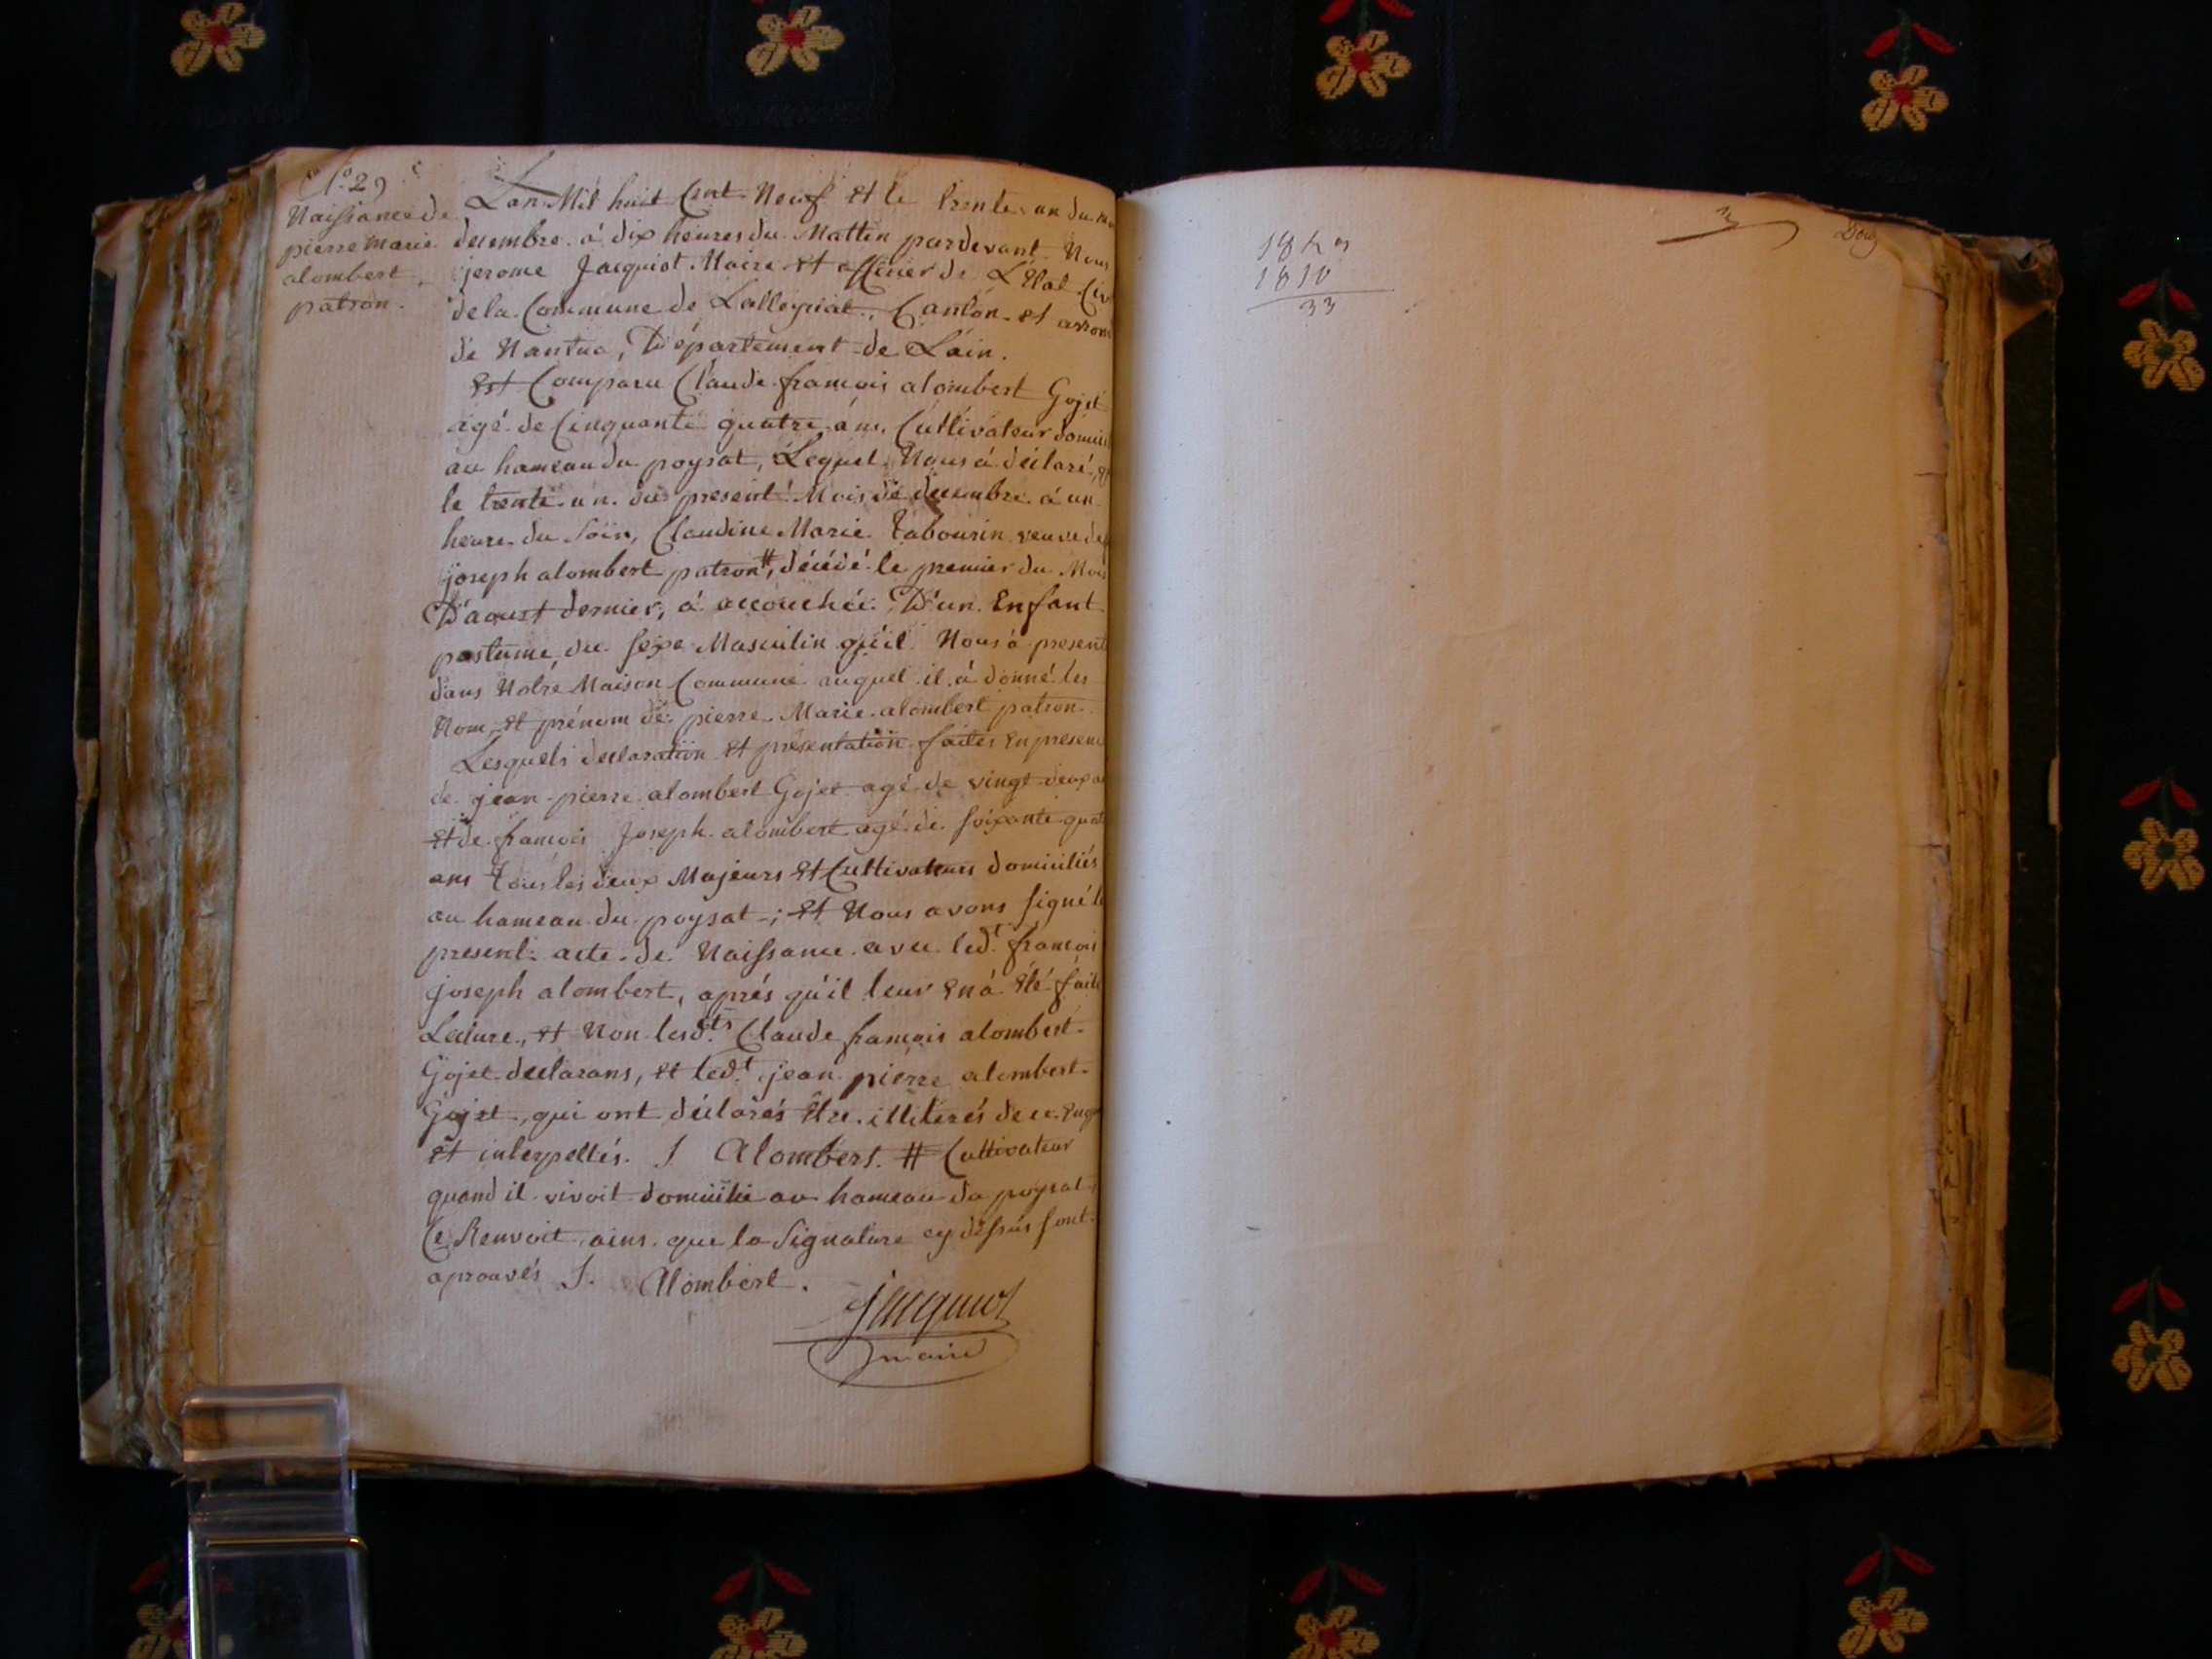 No. 29
Naissance de
pierre Marie
alombert,
patron.
Lan Mil huit Cent Neuf et le trente un du
decembre à dix heures du Mattin pardevant Nous
jerome Jacquiot Maire et officier de L'Etat Civ
de la Commune de Lalleyriat, Canton et arron
de Nantua, Département de Lain.
est Comparu Claude françois alombert Gojet
agé de Cinquante quatre ans, Cultivateur domici
au hameau du poysat, Lequel Nous à déclaré,
le trente un du présent Mois de decembre à un
heure du Soir, Claudine Marie tabourin veuve de
joseph alombert patron #, décédé le premier du Mois
D'aoust dernier, à accouchée D'un Enfant
postume, du Sexe Masculin qu'il Nous à presen
dans Notre Maison Commune auquel il à donné les
Nom, et prénom de pierre Marie alombert patron
Lesquels declaration et présentation faites En presen
de jean-pierre alombert Gojet agé de vingt deux a
et de françois Joseph alombert agé de Soixante quat
ans tous les deux Majeurs et Cultivateurs domiciliés
au hameau du poysat ; et Nous avons Signé l
present acte de Naissance avec led.t françois
joseph alombert, aprés qu'il leur En à été fait
Lecture, et Non lesd.ts Claude françois alombert
Gojet declarans, et led.t jean pierre alombert
Gojet, qui ont déclarés être illiterés de ce Enq
et interpellés. J Alombert. # Cultivateur
quand il vivoit domicilié au hameau du poysat
Ce Renvoit ainsi que la Signature cy dessus Sont
aprouvés J. Alombert.
Jacquiot
maire
1810
33